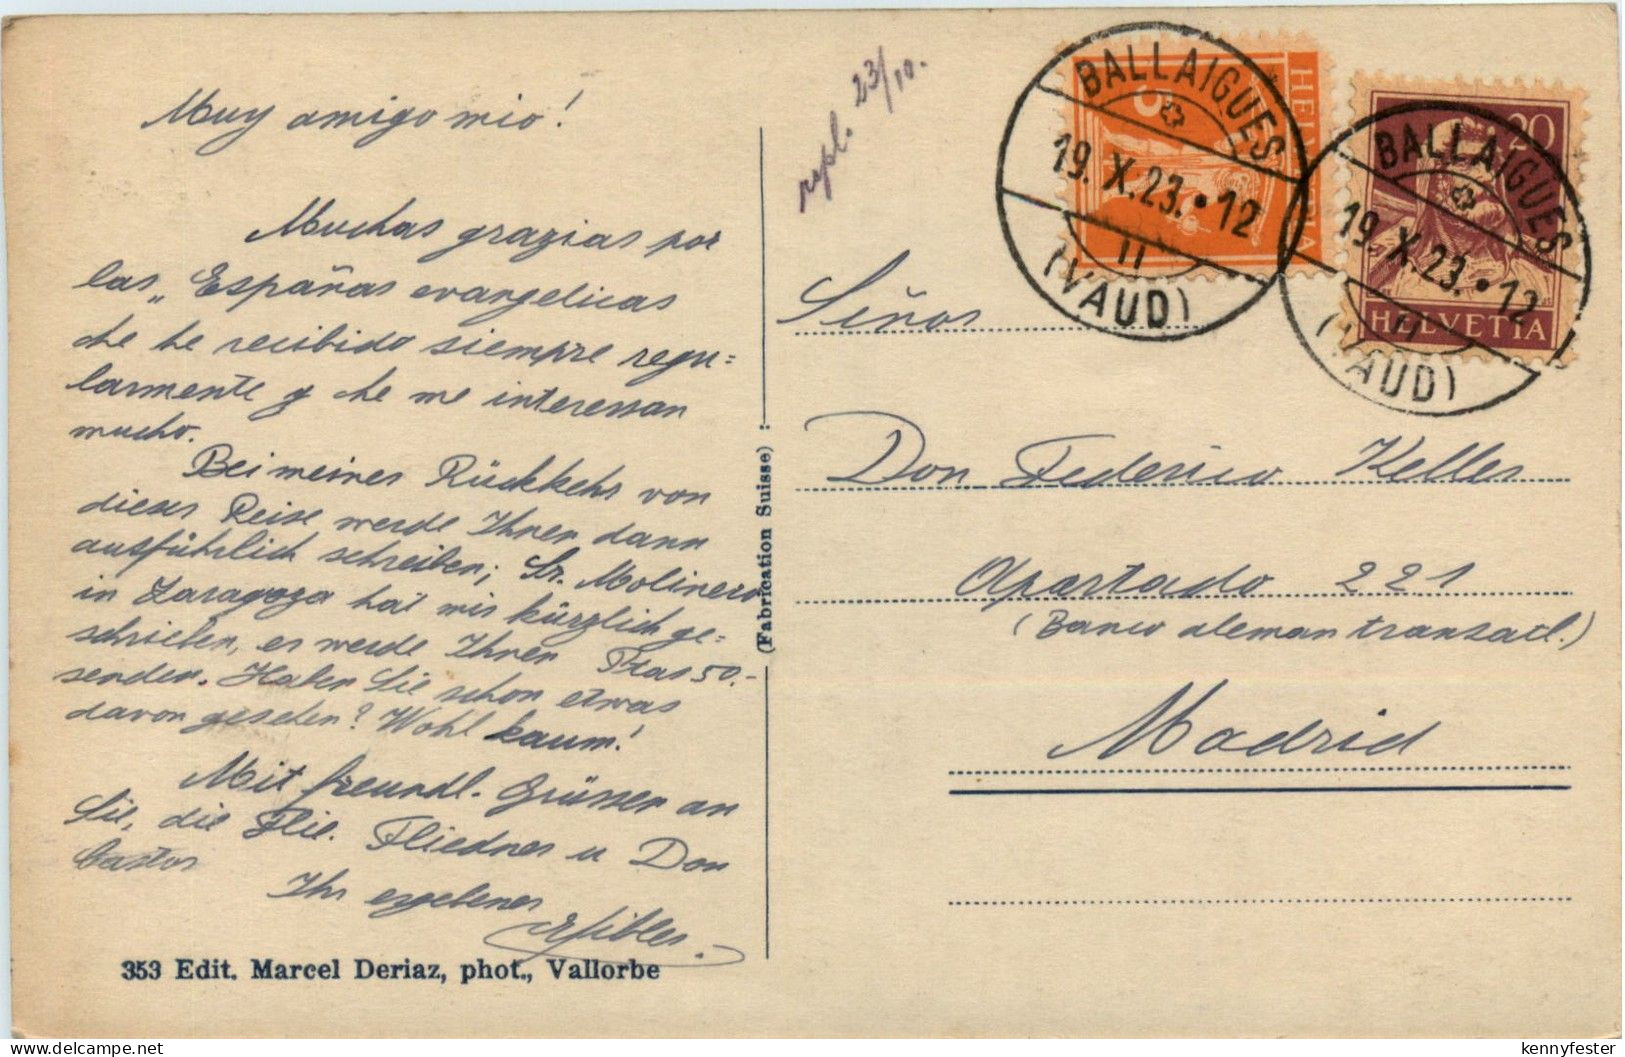 Muy amigo mio!
Muchas grazias por
las „Españas evangelicas
che he recibido siempre regu=
larmente y che me interessan
mucho.
Bei meiner Rückkehr von
dieser Reise werde Ihnen dann
ausführlich schreiben; Sr. Molinero
in Zaragoza hat mir kürzlich ge=
schrieben, er werde Ihnen Ptas 50.-
senden. Haben Sie schon etwas
davon gesehen? Wohl kaum!
Mit freundl. Grüssen an
Sie, die Flie. Fliedner u Don
Castor
Ihr ergebener
353 Edit. Marcel Deriaz, phot., Vallorbe
(Fabrication Suisse)
repl. 23/10.
HELVETIA
5
BALLAIGUES
19. X. 23. • 12
II
(VAUD)
20
HELVETIA
BALLAIGUES
19. X. 23. • 12
II
(VAUD)
Señor
Don Federico Keller
Apartado 221
(Banco aleman transatl.)
Madrid
delcampe.net
kennyfester